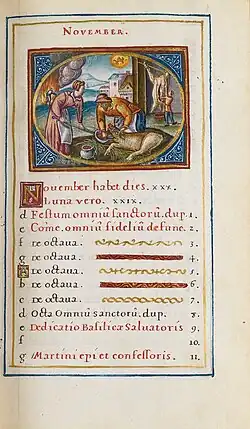 NOVEMBER.
November habet dies. xxx.
Luna vero. xxix.
d Festum omniū sanctorū. dup. 1.
e Cōme. omniū fideliū defunc. 2.
f De octava. 3.
g De octava. 4.
A De octava. 5.
b De octava. 6.
c De octava. 7.
d Octa Omniū sanctorū. dup. 8.
e Dedicatio Basilicæ Salvatoris 9.
f 10.
g Martini epi et confessoris. 11.